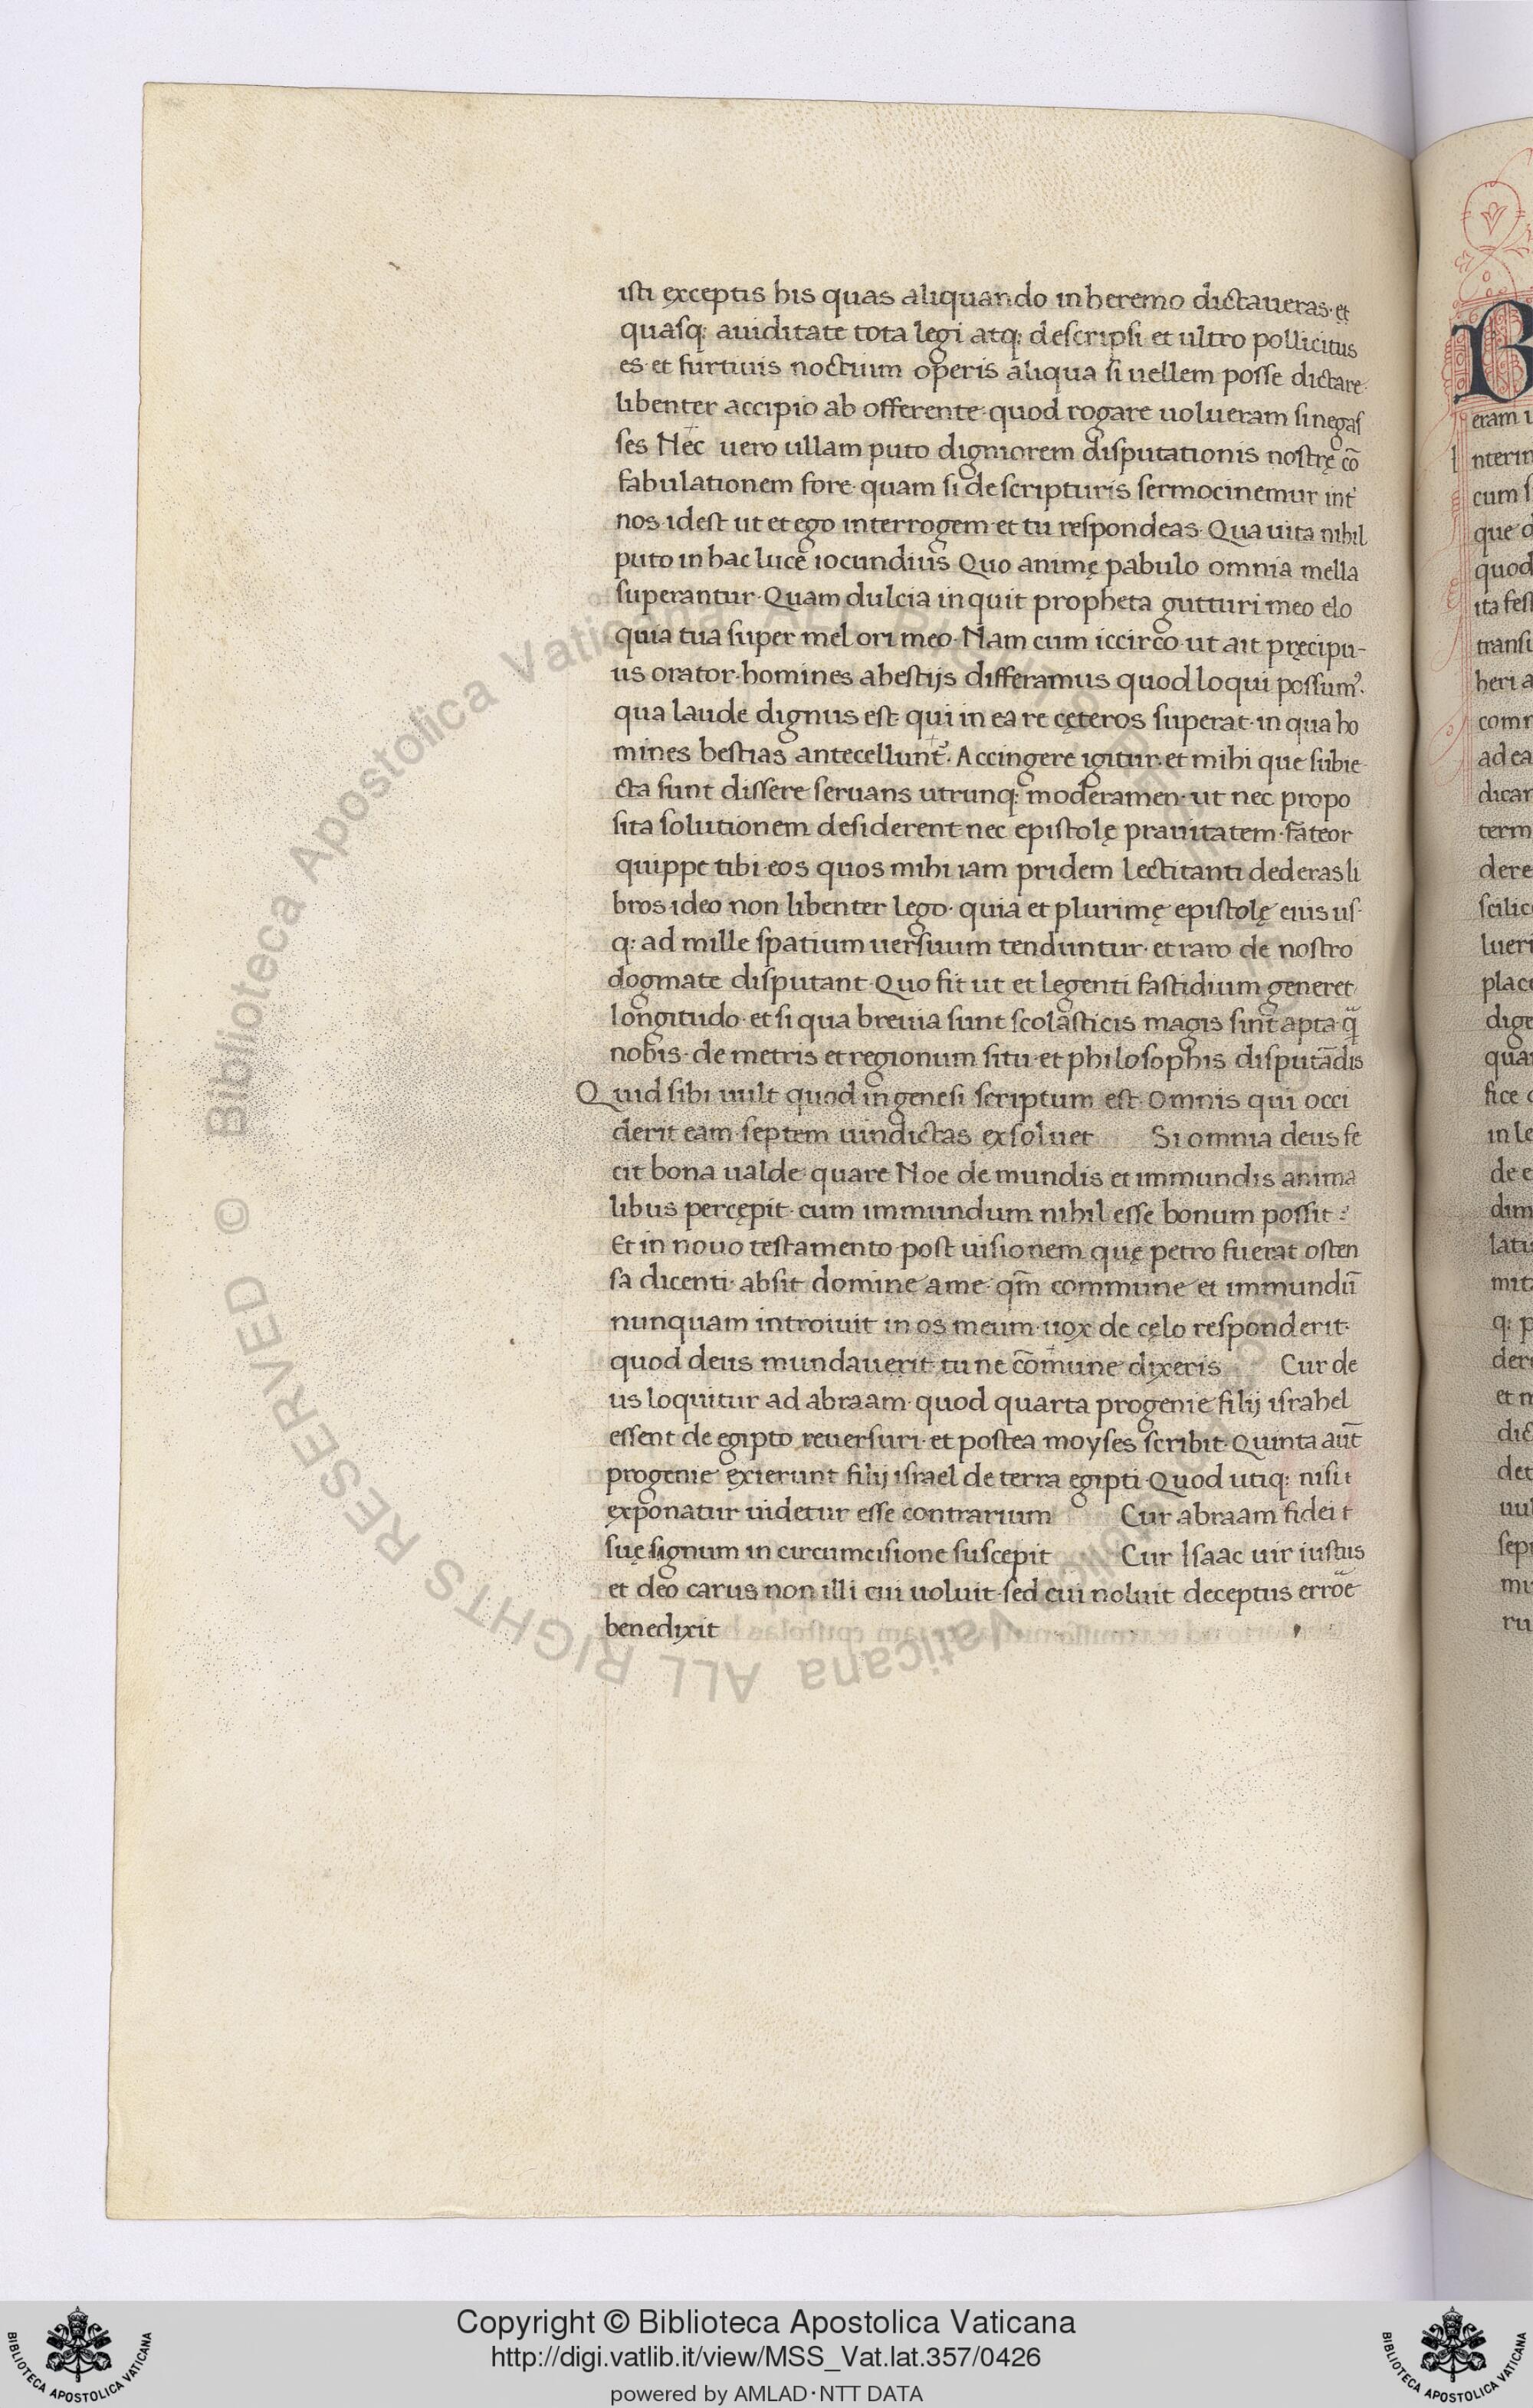 isti exceptis his quas aliquando in heremo dictaueras· et
quasq: auiditate tota legi atq: descripsi et ultro pollicitus
es· et furtiuis noctium operis aliqua si uellem posse dictare·
libenter accipio ab offerente· quod rogare uolueram si negas
ses Nec uero ullam puto digniorem disputationis nostrę cō
fabulationem fore· quam si de scripturis sermocinemur int̕
nos· idest ut et ego interrogem· et tu respondeas· Qua uita nihil
puto in hac luce iocundius Quo animę pabulo omnia mella
superantur· Quam dulcia inquit propheta gutturi meo elo
quia tua super mel ori meo· Nam cum iccirco· ut ait pręcipu-
us orator· homines a bestijs differamus quod loqui possum᾽·
qua laude dignus est· qui in ea re cęteros superat· in qua ho
mines bestias antecellunt᾽· Accingere igitur· et mihi que subie
cta sunt dissere seruans utrunq: moderamen· ut nec propo
sita solutionem desiderent· nec epistolę prauitatem· fateor
quippe tibi· eos quos mihi iam pridem lectitanti dederas li
bros· ideo non libenter lego· quia et plurimę epistolę eius us·
q: ad mille spatium uersuum tenduntur· et raro de nostro
dogmate disputant· Quo fit ut et legenti fastidium generet
longitudo· et si qua breuia sunt scolasticis magis sint apta q̄
nobis· de metris et regionum situ· et philosophis disputādis
Quid sibi uult quod in genesi scriptum est· Omnis qui occi
derit eam· septem uindictas exsoluet Si omnia deus fe
cit bona ualde· quare Noe de mundis et immundis anima
libus percępit· cum immundum nihil esse bonum possit :
Et in nouo testamento· post uisionem quę petro fuerat osten
sa dicenti· absit domine a me· qm̄ commune et immundū
nunquam introiuit in os meum· uox de cęlo responderit·
quod deus mundauerit· tu ne cōmune dixeris Cur de
us loquitur ad abraam· quod quarta progenie filij israhel
essent de egipto reuersuri· et postea moyses scribit· Quinta aut̄
progenie exierunt filij israel de terra egipti· Quod utiq: nisi
exponatur uidetur esse contrarium Cur abraam fidei
suę signum in circumcisione suscepit Cur Isaac uir iustus
et deo carus non illi cui uoluit· sed cui noluit deceptus errōe
benedixit
eram
nterin
cum
que
quod
transi
heri
term
dere
lueri
Copyright © Biblioteca Apostolica Vaticana
http://digi.vatlib.it/view/MSS_Vat.lat.357/0426
powered by AMLAD·NTT DATA
BIBLIOTECA APOSTOLICA VATICANA
BIBLIOTECA APOSTOLICA VATICANA
© Biblioteca Apostolica Vaticana ALL RIGHTS RESERVED